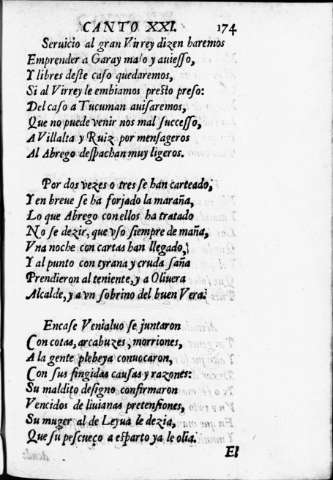 CANTO XXI. 174
Seruicio al gran Virrey dizen haremos
Emprender a Garay malo y auiesso,
Y libres deste caso quedaremos,
Si al Virrey le embiamos presto preso:
Del caso a Tucuman auisaremos,
Que no puede venir nos mal successo,
A Villalta y Ruiz por mensageros
Al Abrego despachan muy ligeros.
Por dos vezes o tres se han carteado,
Y en breue se ha forjado la maraña,
Lo que Abrego con ellos ha tratado
No se dezir, que vso siempre de maña,
Vna noche con cartas han llegado,
Y al punto con tyrana y cruda saña
Prendieron al teniente, y a Oliuera
Alcalde, y a vn sobrino del buen Vera.
En case Venialuo se juntaron
Con cotas, arcabuzes, morriones,
A la gente plebeya conuocaron,
Con sus fingidas causas y razones:
Su maldito designo confirmaron
Vencidos de liuianas pretensiones,
Su muger al de Leyua le dezia,
Que su pescueço a esparto ya le olia.
El